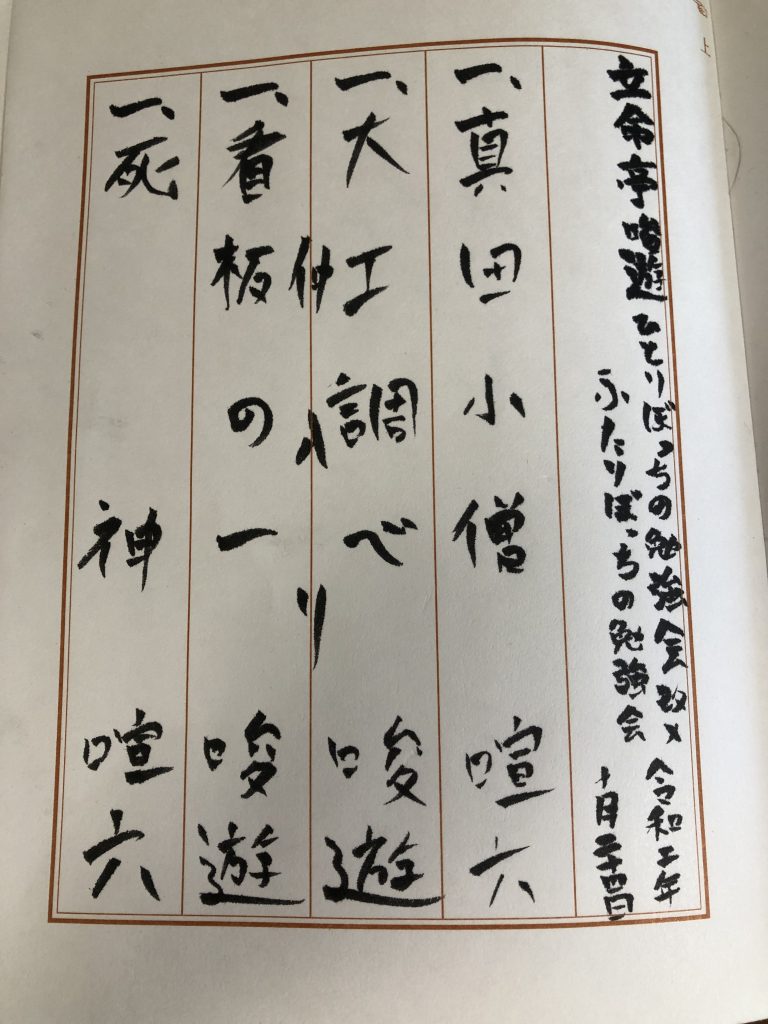 上
立命亭唆遊ひとりぼっちの勉強会改メ
ふたりぼっちの勉強会
令和二年
十月二十四日
一、真田小僧 喧六
一、大工調べ 唆遊
仲入り
一、看板の一 唆遊
一、死神 喧六